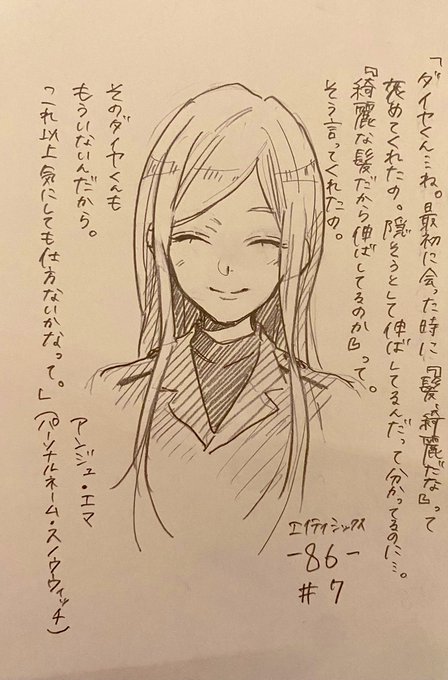 「ダイヤくん…ね。最初に会った時に『髪、綺麗だな』って
褒めてくれたの。隠そうとして伸ばしてるんだって分かってるのに…。
『綺麗な髪だから伸ばしてるのか』って。
そう言ってくれたの。
そのダイヤくんも
もういないんだから。
これ以上気にしても仕方ないかなって。」
アンジュ・エマ
(パーソナルネーム・スノウウィッチ)
エイティシックス
-86-
#7